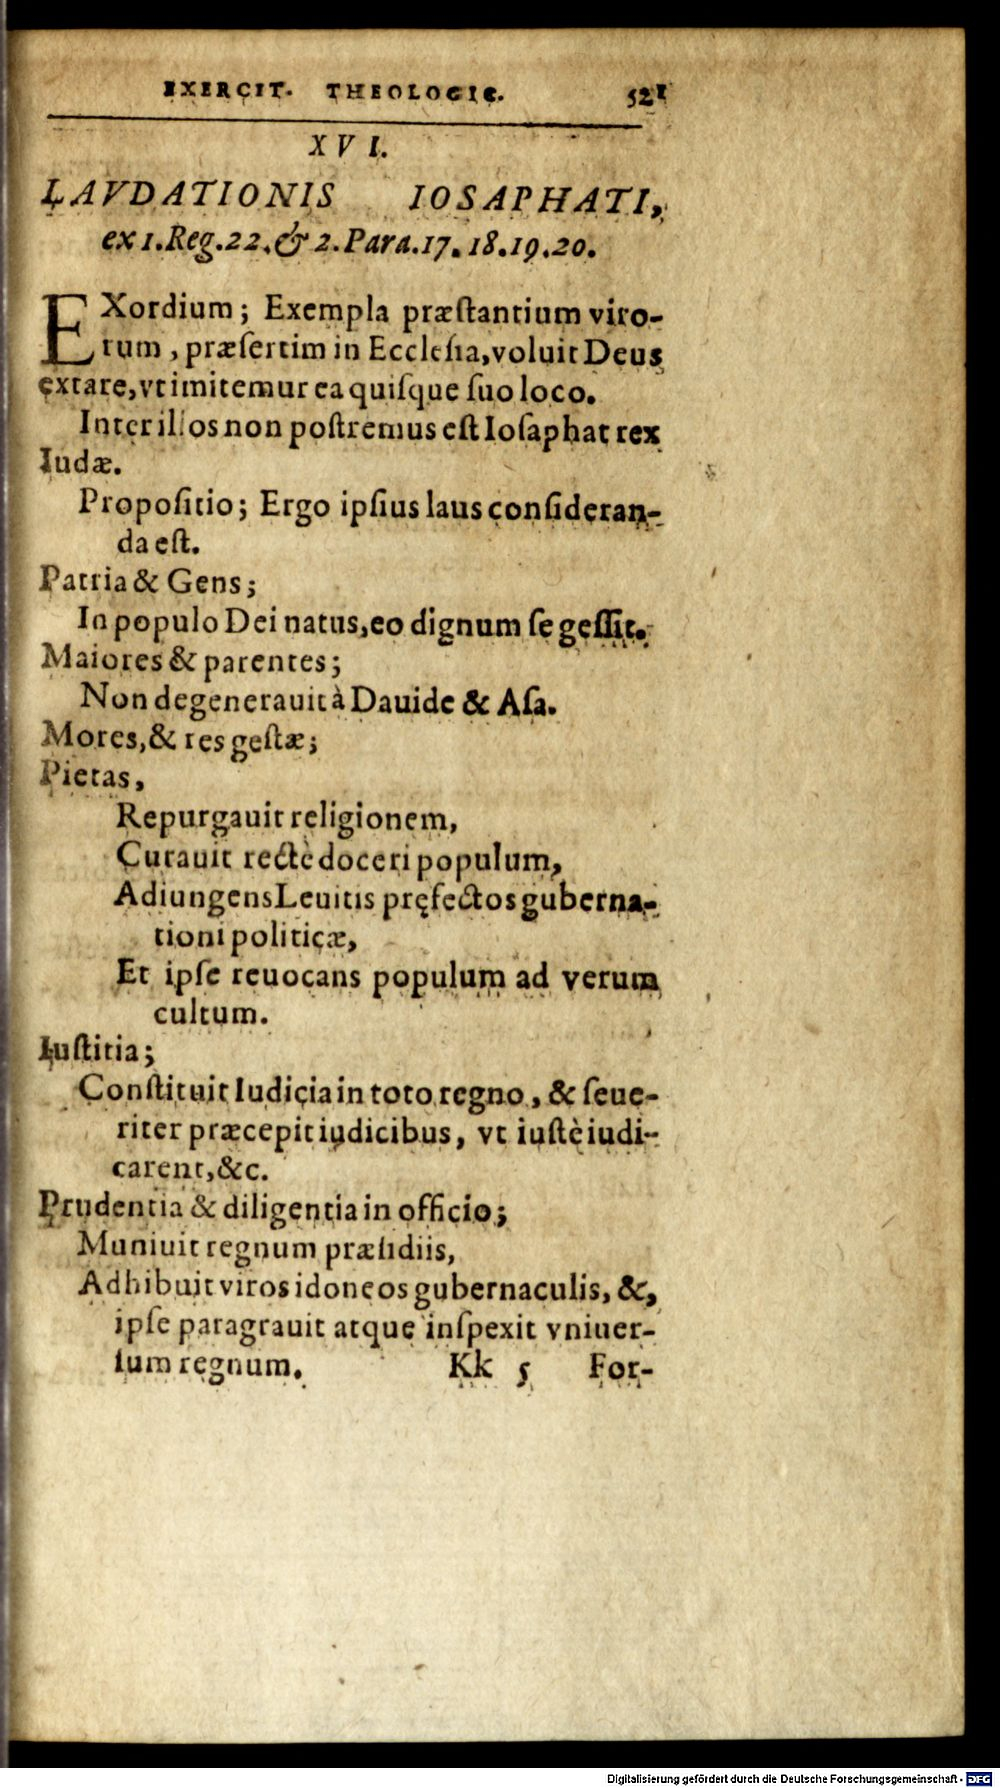 EXERCIT. THEOLOGIC. 521
XVI.
LAVDATIONIS IOSAPHATI,
ex 1. Reg. 22. & 2. Para. 17. 18. 19. 20.
EXordium; Exempla præſtantium viro-
rum, præſertim in Eccleſia, voluit Deus
extare, vt imitemur ea quiſque ſuo loco.
Inter illos non poſtremus eſt Ioſaphat rex
Iudæ.
Propoſitio; Ergo ipſius laus conſideran-
da eſt.
Patria & Gens;
In populo Dei natus, eo dignum ſe geſſit.
Maiores & parentes;
Non degenerauit à Dauide & Aſa.
Mores, & res geſtæ;
Pietas,
Repurgauit religionem,
Curauit rectè doceri populum,
Adiungens Leuitis pręfectos guberna-
tioni politicæ,
Et ipſe reuocans populum ad verum
cultum.
Iuſtitia;
Conſtituit Iudicia in toto regno, & ſeue-
riter præcepit iudicibus, vt iuſtè iudi-
carent, &c.
Prudentia & diligentia in officio;
Muniuit regnum præſidiis,
Adhibuit viros idoneos gubernaculis, &,
ipſe paragrauit atque inſpexit vniuer-
ſum regnum. Kk 5 For-
Digitalisierung gefördert durch die Deutsche Forschungsgemeinschaft - DFG